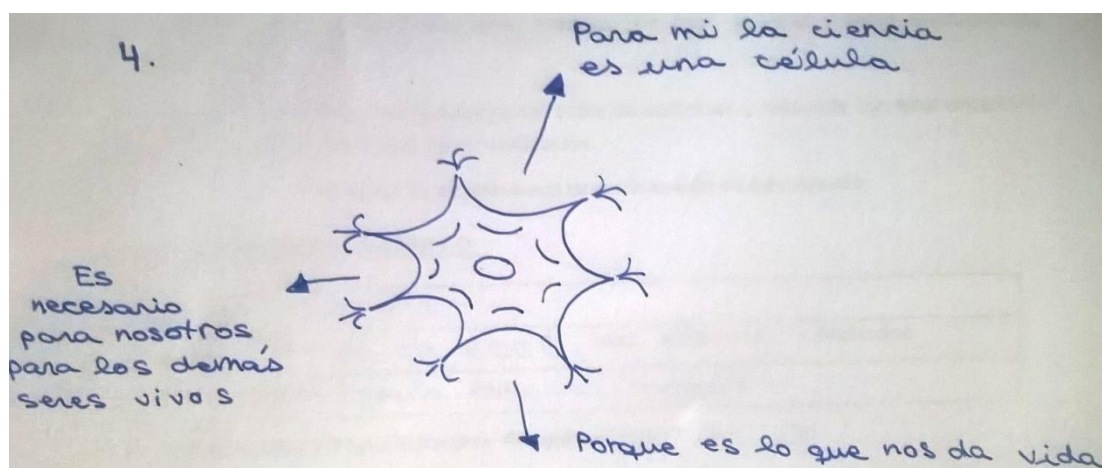 4.
Para mi la ciencia
es una célula
Es
necesario
para nosotros,
para los demás
seres vivos
Porque es lo que nos da vida